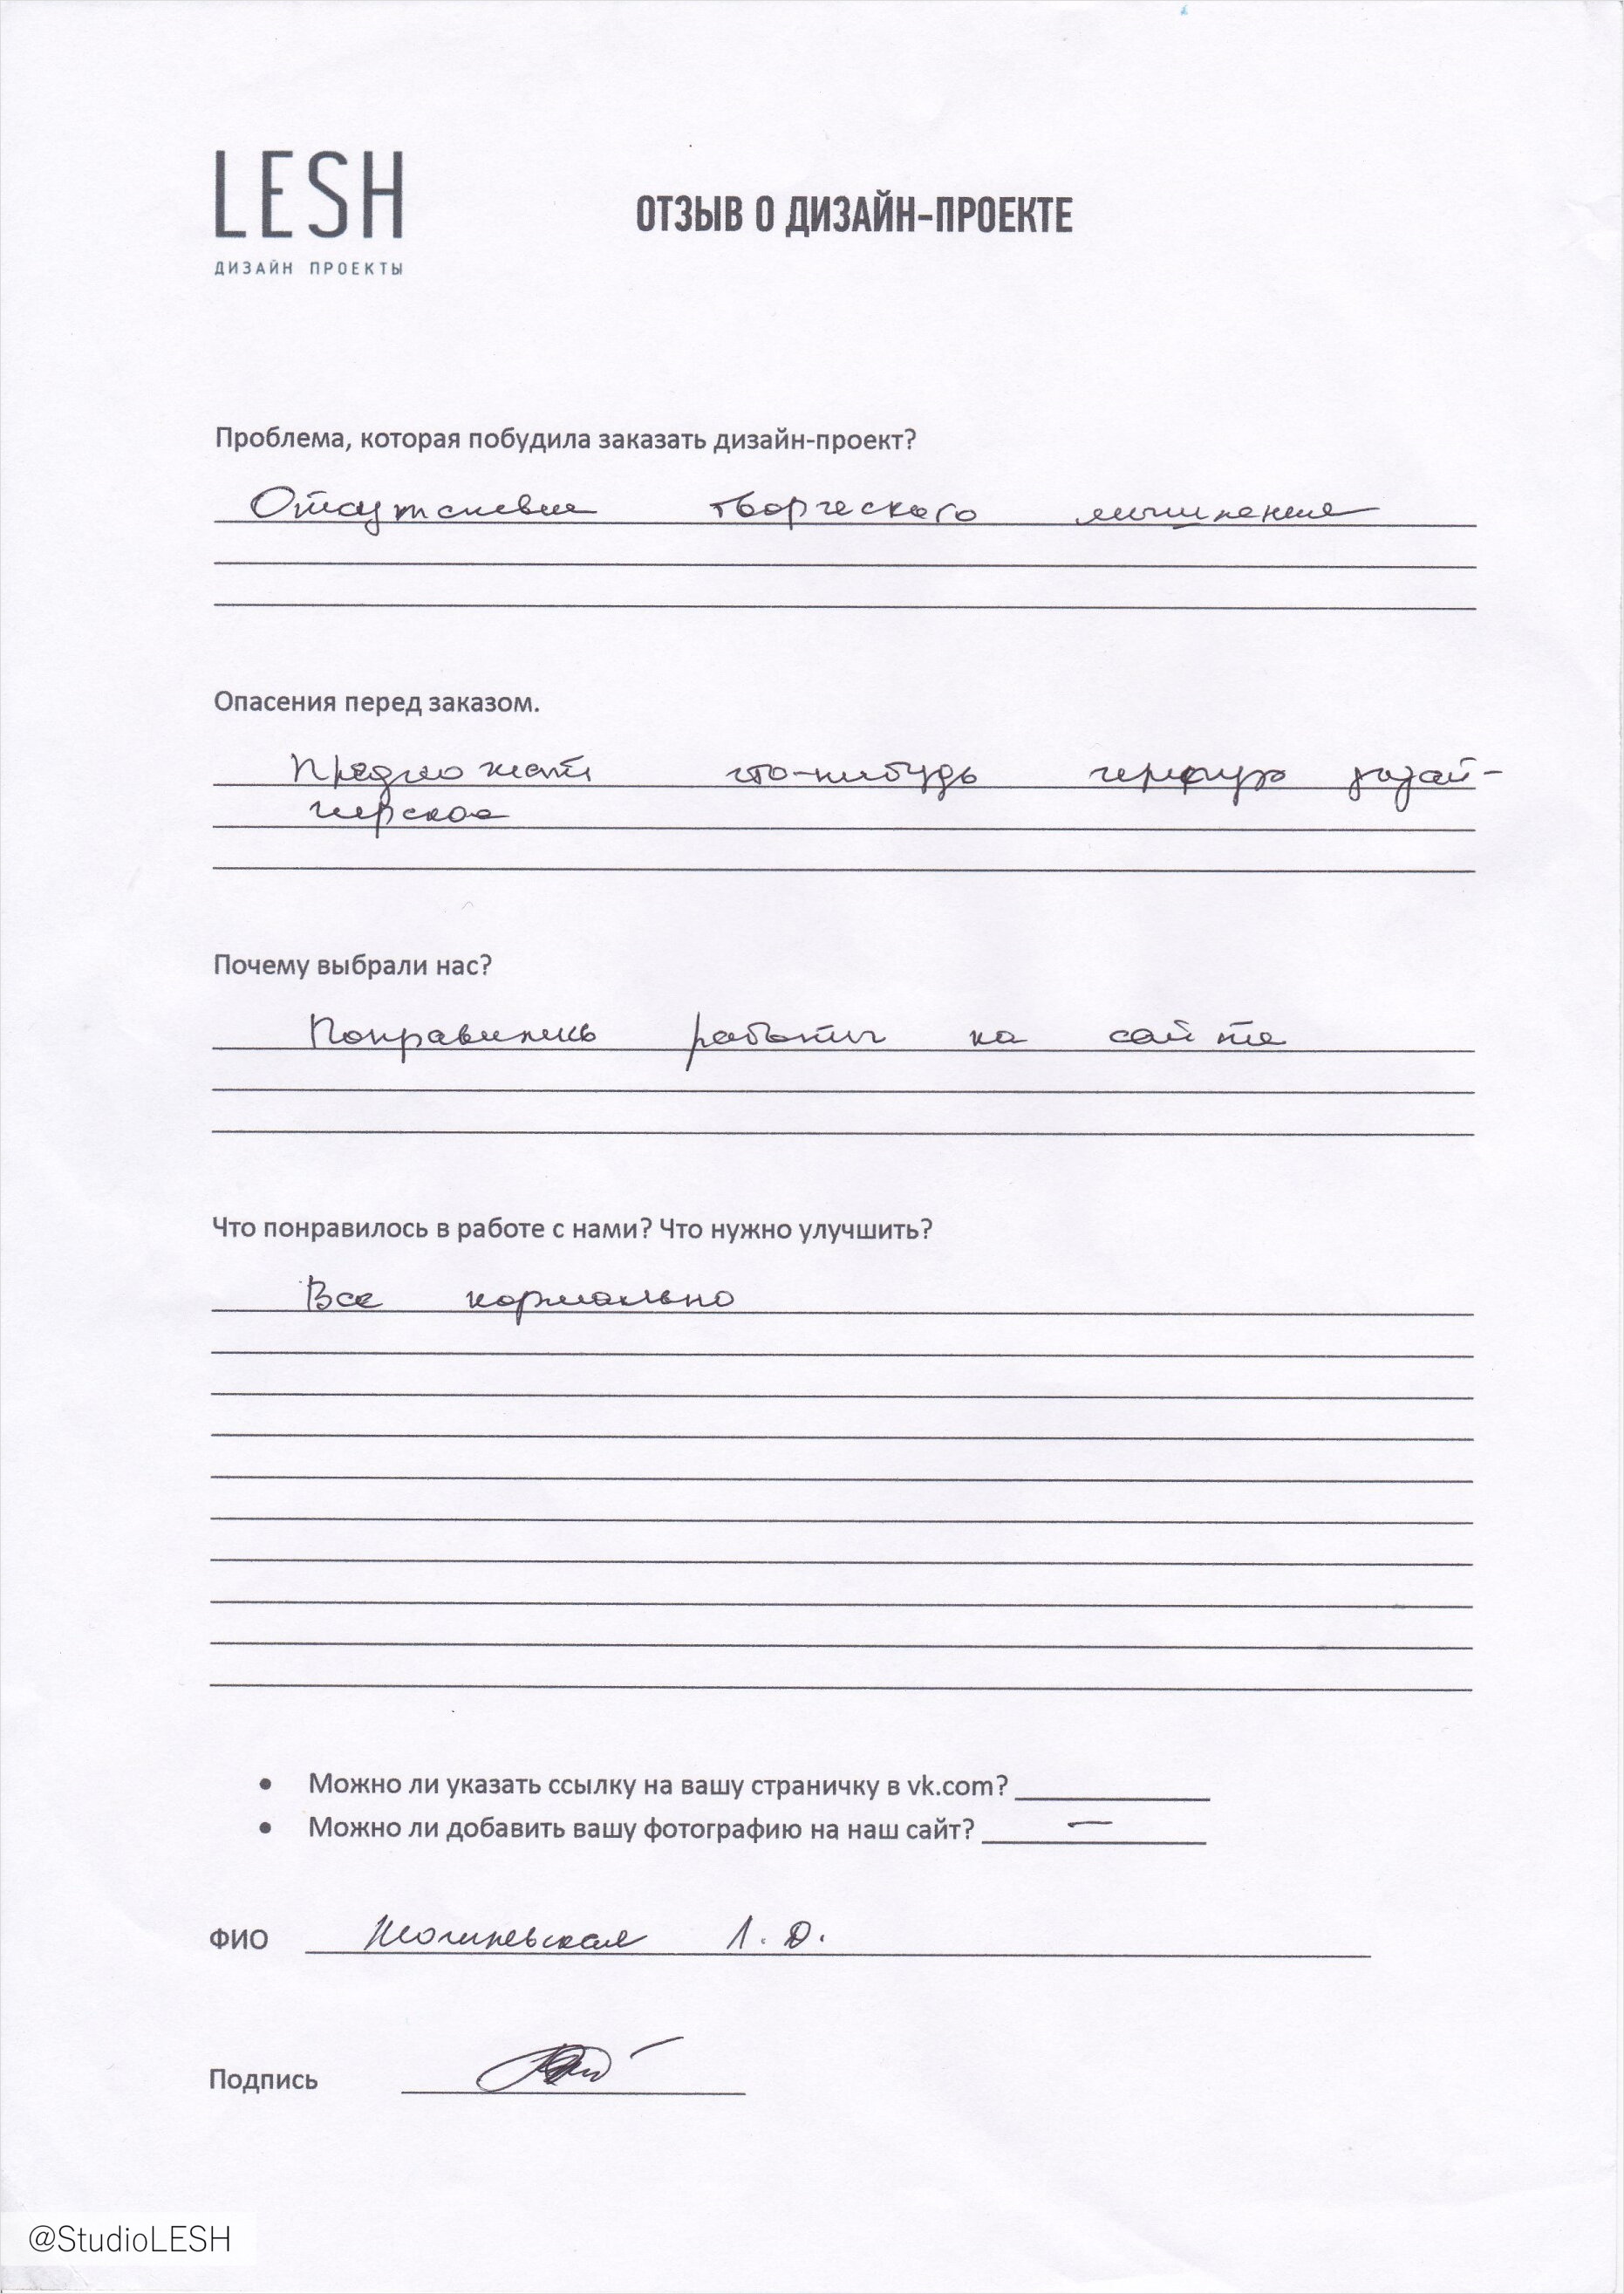 LESH
ДИЗАЙН ПРОЕКТЫ
ОТЗЫВ О ДИЗАЙН-ПРОЕКТЕ
Проблема, которая побудила заказать дизайн-проект?
Отсутствие творческого мышления
Опасения перед заказом.
Предложат что-нибудь дизай-
нерское
Почему выбрали нас?
Понравились работы на сайте
Что понравилось в работе с нами? Что нужно улучшить?
Все нормально
• Можно ли указать ссылку на вашу страничку в vk.com?
• Можно ли добавить вашу фотографию на наш сайт? —
ФИО Л. Д.
Подпись
@StudioLESH